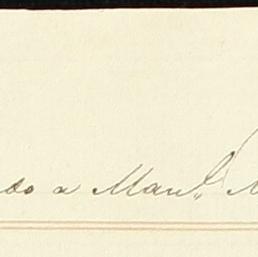 do a Man.l